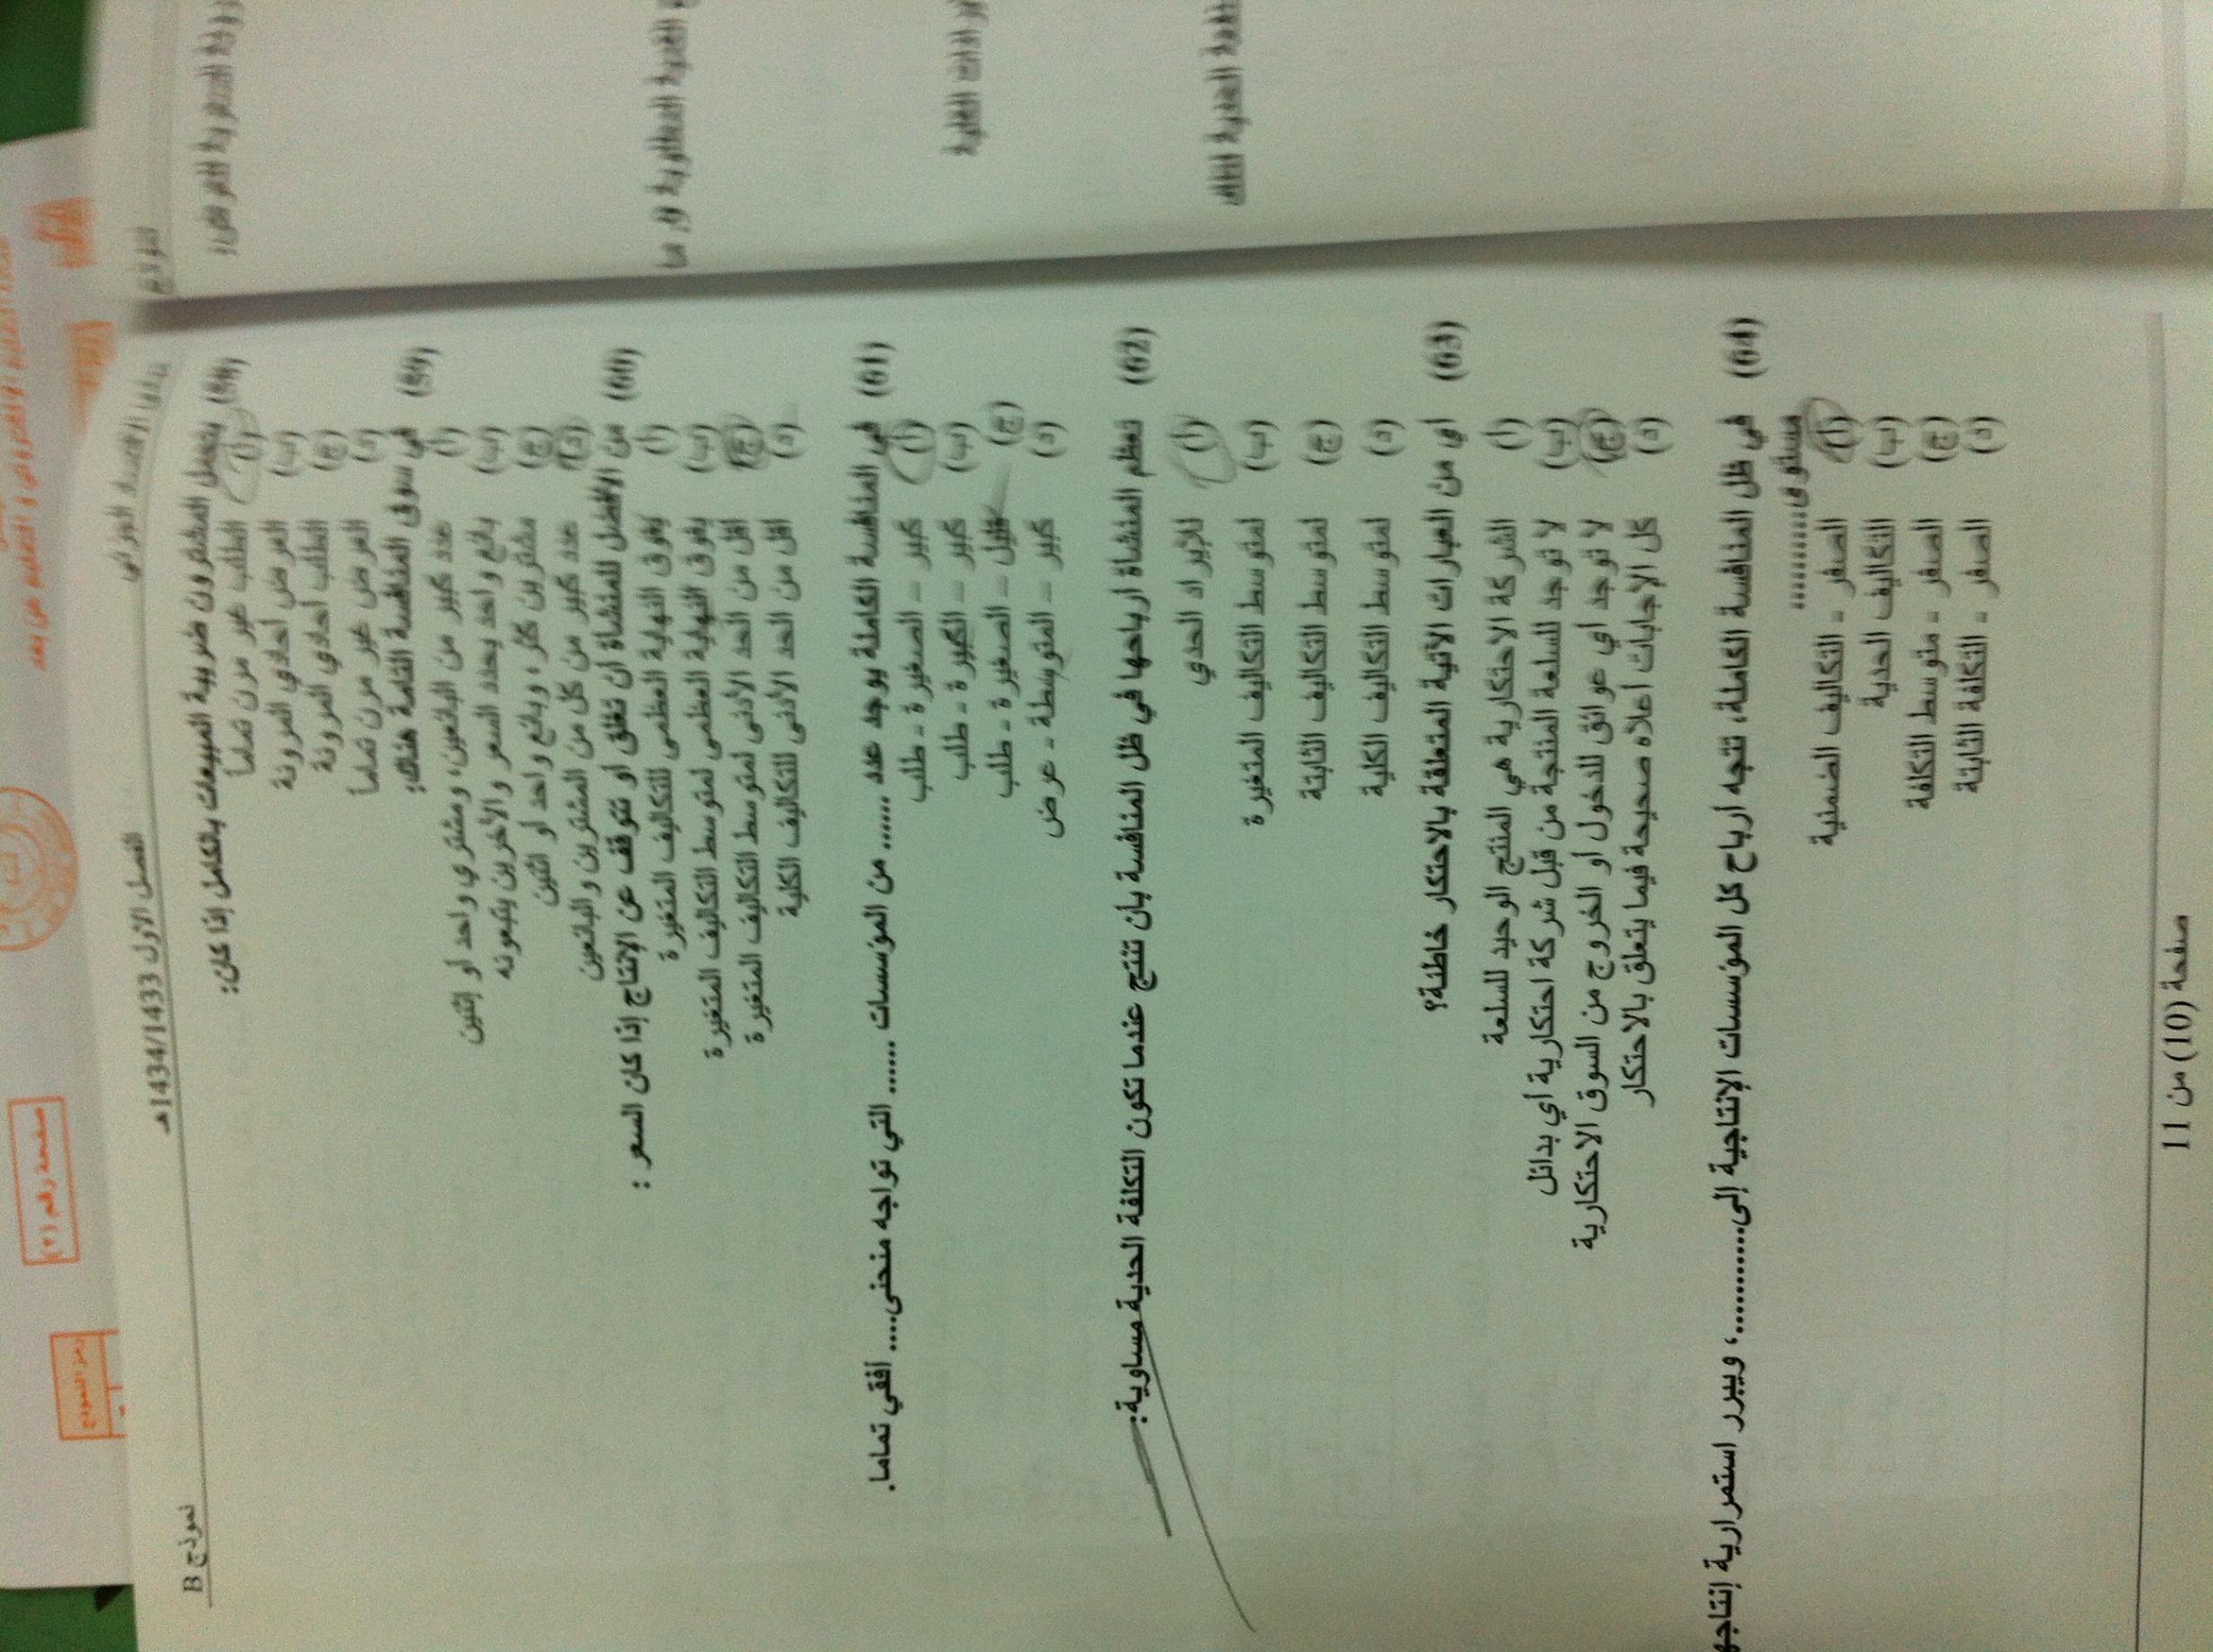 نموذج B
الفصل الأول 1433/1434هـ
صفحة رقم (٢)
رمز النموذج
(58) يتحمل المشترون ضريبة المبيعات بالكامل إذا كان:
(أ) الطلب غير مرن تماماً
(ب) العرض أحادي المرونة
(ج) الطلب أحادي المرونة
(د) العرض غير مرن تماماً
(59) في سوق المنافسة التامة هناك:
(أ) عدد كبير من البائعين، ومشتري واحد أو إثنين
(ب) بائع واحد يحدد السعر والآخرين يتبعونه
(ج) مشترين كثر، وبائع واحد أو اثنين
(د) عدد كبير من كل من المشترين والبائعين
(60) من الأفضل للمنشاة أن تغلق أو تتوقف عن الإنتاج إذا كان السعر :
(أ) يفوق النهاية العظمى للتكاليف المتغيرة
(ب) يفوق النهاية العظمى لمتوسط التكاليف المتغيرة
(ج) أقل من الحد الأدنى لمتوسط التكاليف المتغيرة
(د) أقل من الحد الأدنى للتكاليف الكلية
(61) في المنافسة الكاملة يوجد عدد ....... من المؤسسات ...... التي تواجه منحنى.... أفقي تماما.
(أ) كبير – الصغيرة - طلب
(ب) كبير – الكبيرة - طلب
(ج) قليل – الصغيرة - طلب
(د) كبير – المتوسطة - عرض
(62) تعظم المنشاة أرباحها في ظل المنافسة بأن تنتج عندما تكون التكلفة الحدية مساوية:
(أ) للإيراد الحدي
(ب) لمتوسط التكاليف المتغيرة
(ج) لمتوسط التكاليف الثابتة
(د) لمتوسط التكاليف الكلية
(63) أي من العبارات الآتية المتعلقة بالاحتكار خاطئة؟
(أ) الشركة الاحتكارية هي المنتج الوحيد للسلعة
(ب) لا توجد للسلعة المنتجة من قبل شركة احتكارية أي بدائل
(ج) لا توجد أي عوائق للدخول أو الخروج من السوق الاحتكارية
(د) كل الإجابات أعلاه صحيحة فيما يتعلق بالاحتكار
(64) في ظل المنافسة الكاملة، تتجه أرباح كل المؤسسات الإنتاجية إلى............، ويبرر استمرارية إنتاجه
مستوى...........
(أ) الصفر - التكاليف الضمنية
(ب) التكاليف الحدية
(ج) الصفر - متوسط التكلفة
(د) الصفر - التكلفة الثابتة
صفحة (10) من 11